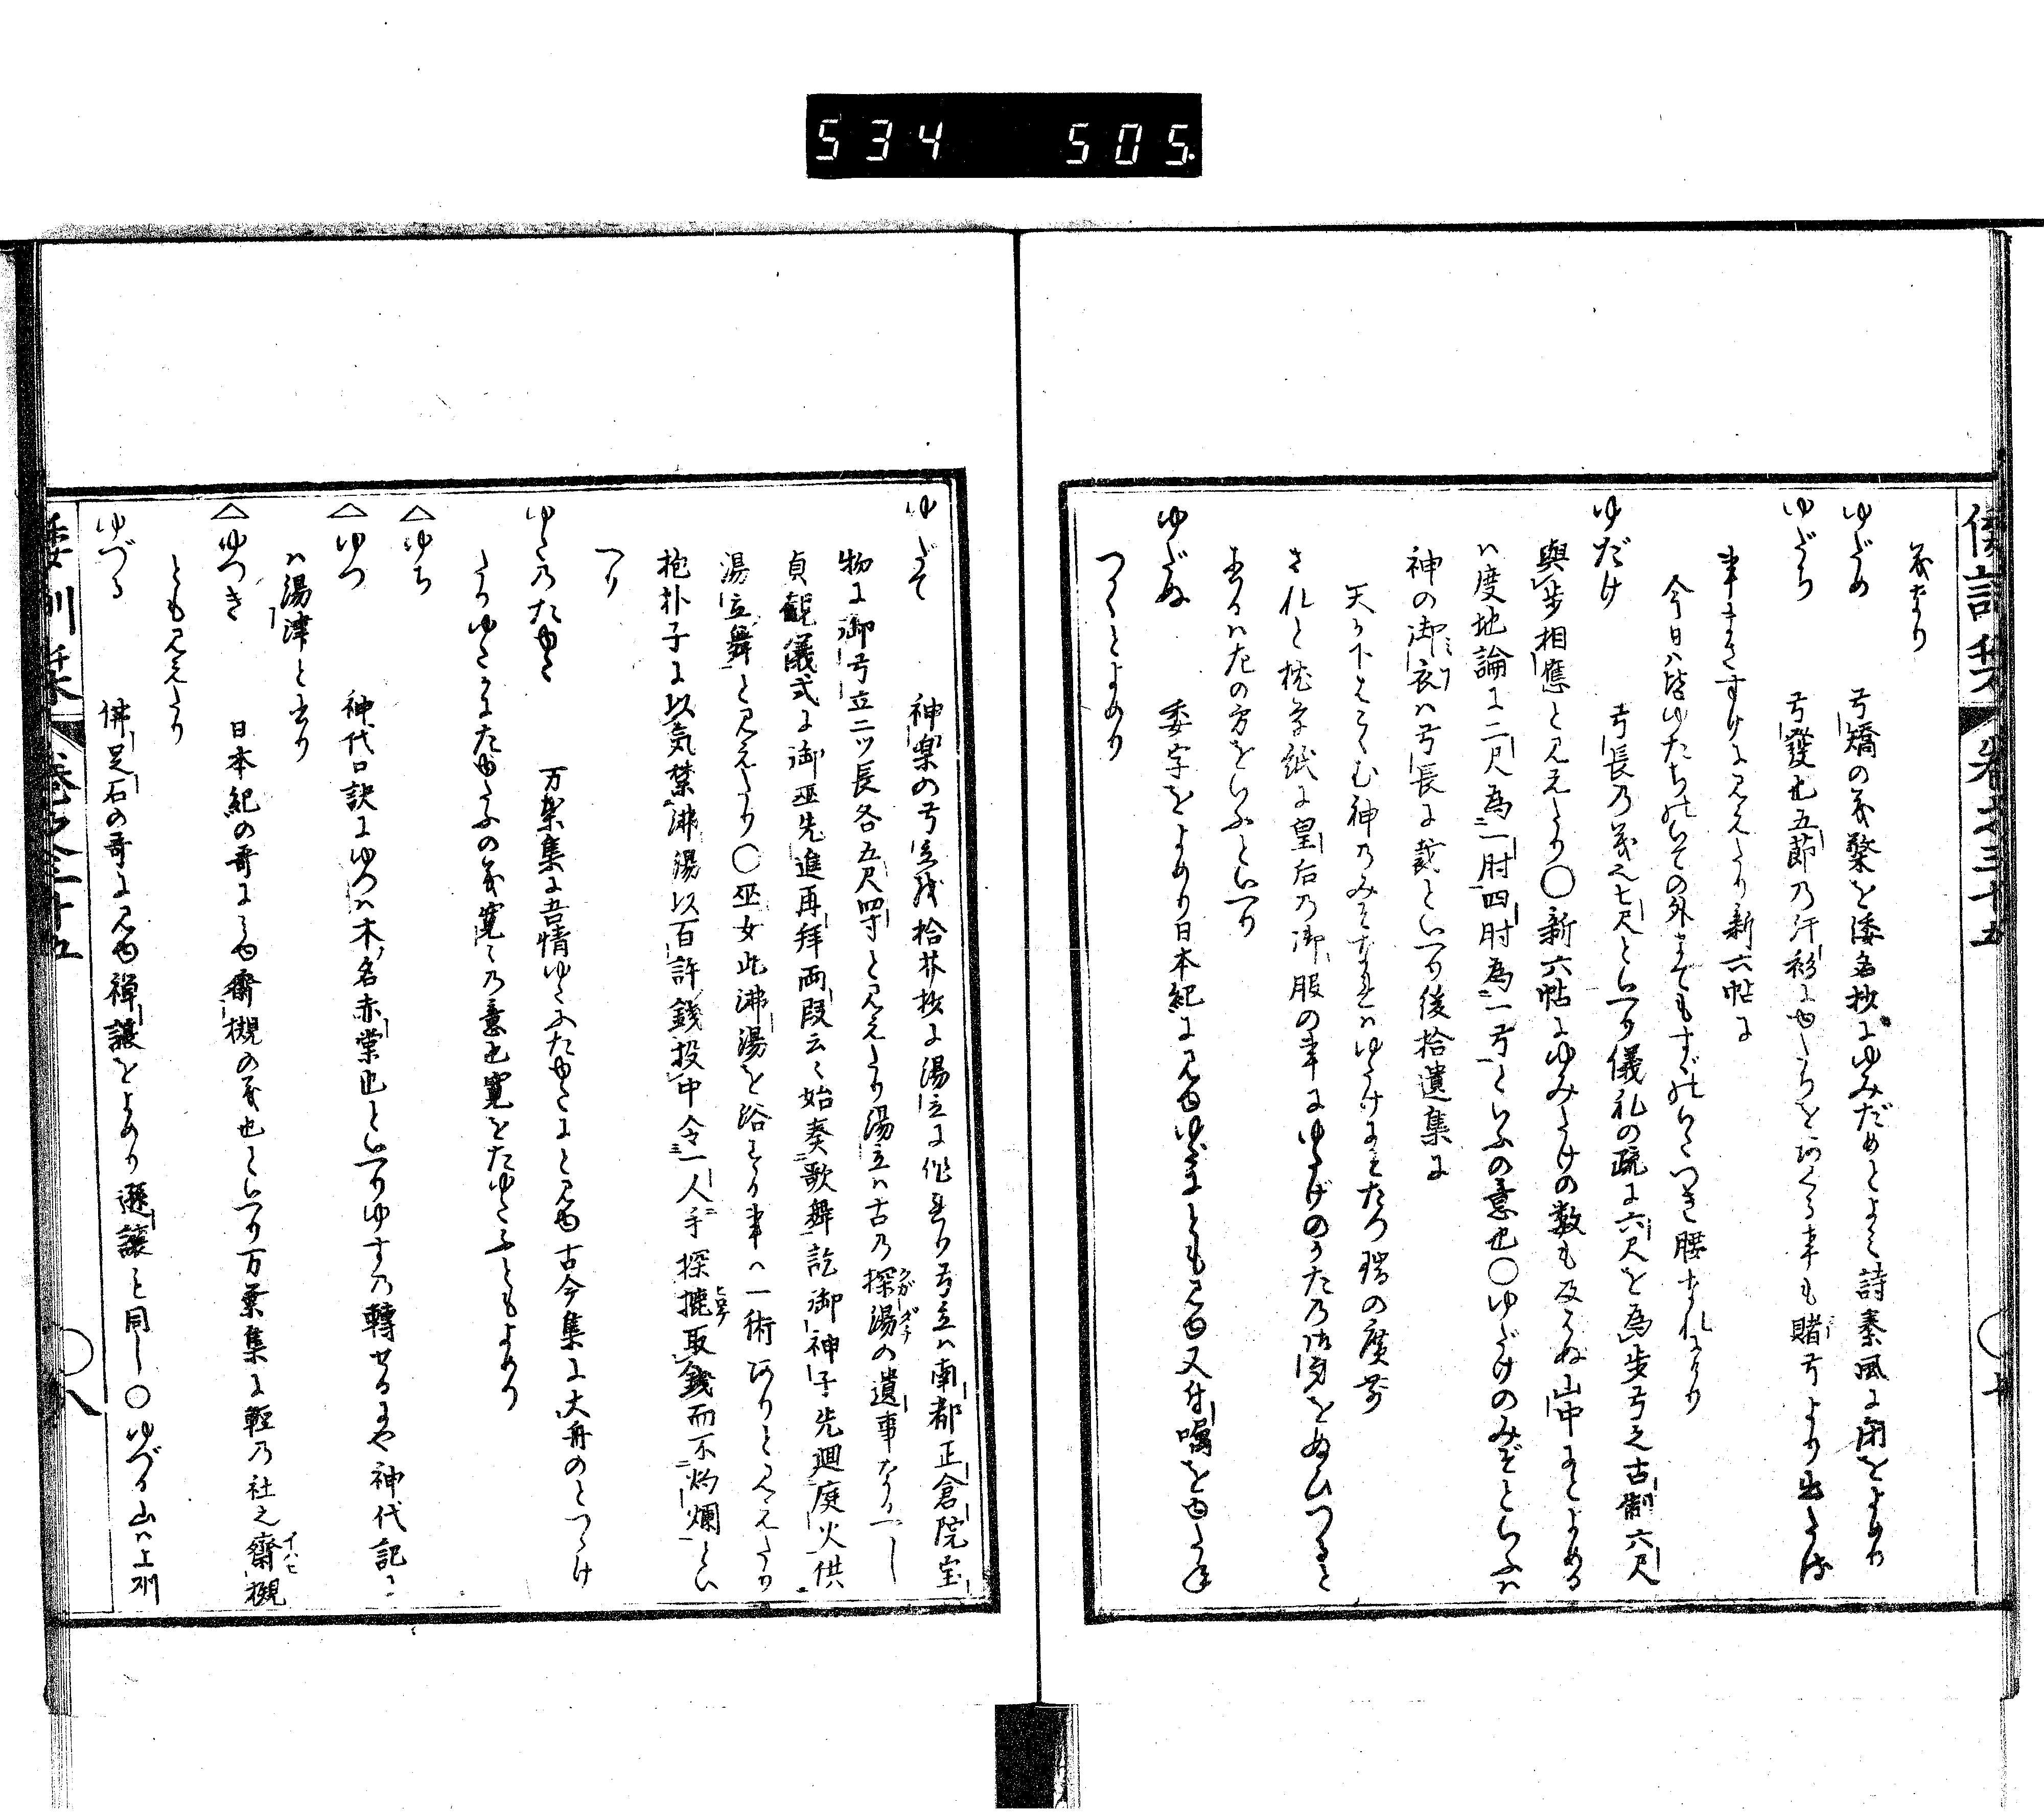 534 505.
倭訓栞 巻之三十五
義なり
ゆだめ 弓矯の義檠を倭名抄にゆみだめとよみ詩秦風に閉をよめり
ゆだち 弓發也五節乃汗衫にゆだちをあくる事も賭弓より出たる
事こまきすけに見えたり新六帖に
今日は皆ゆたちぬいての外まてもすがぬらしつき腰なれにけり
ゆだけ 弓長乃義也七尺といへり儀礼の疏に六尺を為歩弓之古制六尺
與歩相應と見えたり○新六帖にゆみたけの数も及はぬ山中にとよめる
は度地論に二尺為一肘四肘為一弓といふの意也○ゆだけのみぞといふは
神の御衣は弓長に裁といへり後拾遺集に
天が下はくゝむ神乃みそなれはゆたけにそたつ瑞の廣前
されと枕草紙に皇后乃御服の事にゆたけのかた乃御身をぬひつると
あるは左の方をいふといへり
ゆだぬ 委字をよめり日本紀に見ゆゆだまとも見ゆ又付囑をゆだね
つくとよめり
ゆだて 神樂の弓立残拾芥抄に湯立に作れり弓立は南都正倉院宝
物に御弓立二ッ長各五尺四寸と見えたり湯立は古乃探湯の遺事なるへし
貞観儀式に御巫先進再拝両段云々始奏歌舞訖御神子先廻庭火供
湯立舞と見えたり○巫女此沸湯を浴する事は一術ありと見えたり
抱朴子に以気禁沸湯以百許銭投中令一人手探摝取銭而不灼爛とい
へり
ゆたのたゆた 万葉集に吾情ゆたにたゆたにと見ゆ古今集に大舟のとつゝけ
たりゆたかにたゆたふの義寛々乃意也寛をたゆたふともよめり
△ゆち
△ゆつ 神代口訣にゆつは木名赤棠也といへりゆすの轉せるにや神代記に
は湯津と書り
△ゆつき 日本紀の哥にみゆ齋槻の義也といへり万葉集に軽乃社之齋槻
とも見えたり
ゆづる 佛足石の哥に見ゆ禅譲をよめり遜譲と同し○ゆづる山は上州
倭訓栞 巻之三十五 八